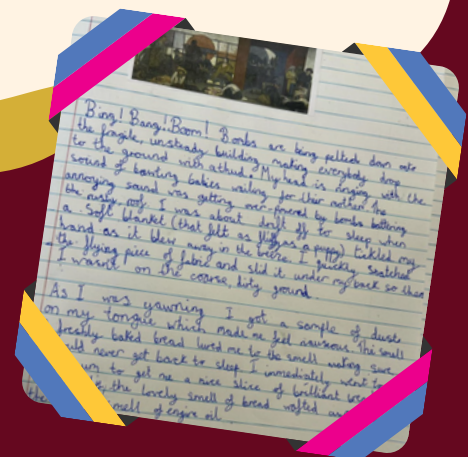 Bing! Bang! Boom! Bombs are being pelted down onto
the fragile, unsteady building making everybody drop
to the ground with a thud. My head is ringing with the
sound of bawling babies wailing for their mother. The
annoying sound was getting over powered by bombs battering
the rusty roof. I was about drift off to sleep when
a soft blanket (that felt as fluffy as a puppy) tickled my
hand as it blew away in the breeze. I quickly snatched
the flying piece of fabric and slid it under my back so then
I wasn't on the coarse, dirty ground.
As I was yawning I got a sample of dust
on my tongue which made me feel nauseous. The smell
freshly baked bread lured me to the smell making sure
never get back to sleep I immediately went
to get me a nice slice of brilliant
the lovely smell of bread wafted
smell of engine oil.